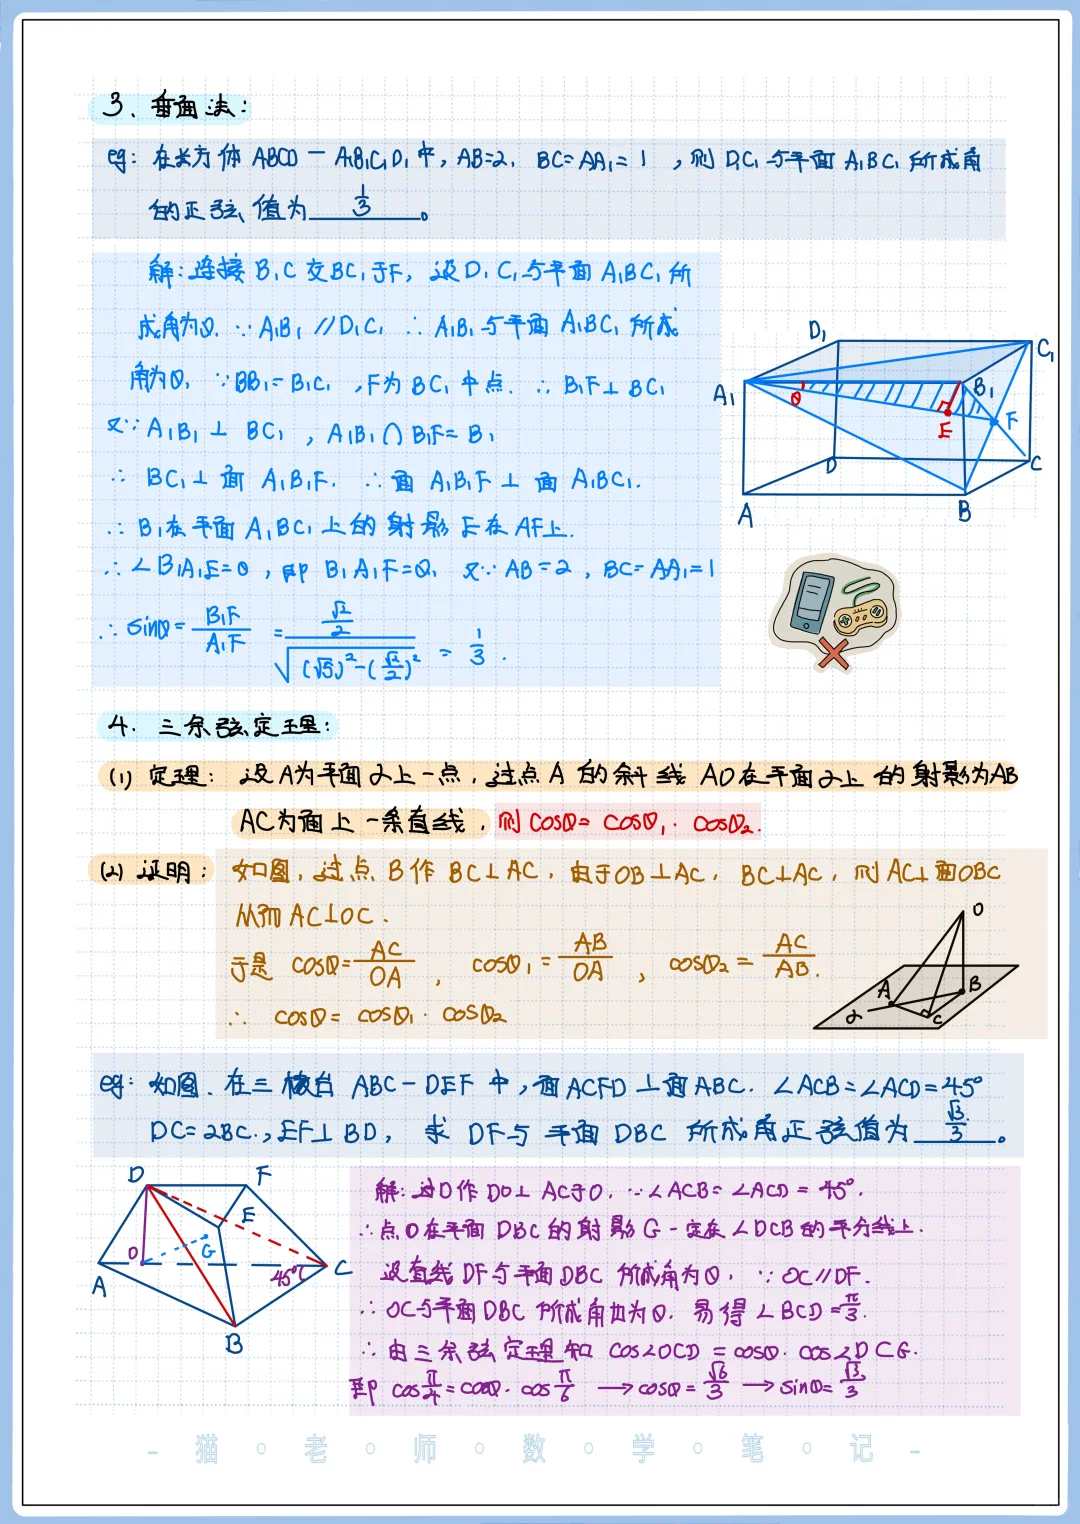 3、垂面法：
eg：在长方体 ABCD－A₁B₁C₁D₁中，AB=2，BC=AA₁=1，则D₁C₁与平面A₁BC₁所成角
的正弦值为 1/3 。
解：连接B₁C交BC₁于F，设D₁C₁与平面A₁BC₁所
成角为θ，∵A₁B₁∥D₁C₁ ∴A₁B₁与平面A₁BC₁所成
角为θ，∵BB₁=B₁C₁，F为BC₁中点．∴B₁F⊥BC₁
又∵A₁B₁⊥BC₁，A₁B₁∩B₁F=B₁
∴BC₁⊥面A₁B₁F．∴面A₁B₁F⊥面A₁BC₁．
∴B₁在平面A₁BC₁上的射影E在AF上．
∴∠B₁A₁E=θ，即B₁A₁F=θ，又∵AB=2，BC=AA₁=1
∴sinθ=B₁F/A₁F=(√2/2)/√((√5)²-(√2/2)²)=1/3．
D₁
C₁
A₁
θ
B₁
E
F
D
C
A
B
4．三余弦定理：
(1) 定理：设A为平面α上一点，过点A的斜线AO在平面α上的射影为AB
AC为面上一条直线，则cosθ=cosθ₁·cosθ₂．
(2) 证明：如图，过点B作BC⊥AC，由于OB⊥AC，BC⊥AC，则AC⊥面OBC
从而AC⊥OC．
于是 cosθ=AC/OA，cosθ₁=AB/OA，cosθ₂=AC/AB．
∴ cosθ=cosθ₁·cosθ₂
O
A
B
α
C
eg：如图．在三棱台ABC-DEF中，面ACFD⊥面ABC．∠ACB=∠ACD=45°
DC=2BC．，EF⊥BD，求DF与平面DBC所成角正弦值为 √3/3 。
D
F
E
O
G
A
45°
C
B
解：过D作DO⊥AC于O．∵∠ACB=∠ACD=45°．
∴点O在平面DBC的射影G一定在∠DCB的平分线上．
设直线DF与平面DBC所成角为θ，∵OC∥DF．
∴OC与平面DBC所成角也为θ．易得∠BCD=π/3．
∴由三余弦定理知cos∠OCD=cosθ·cos∠DCG．
即cosπ/4=cosθ·cosπ/6→cosθ=√6/3→sinθ=√3/3
-猫·老·师·数·学·笔·记-